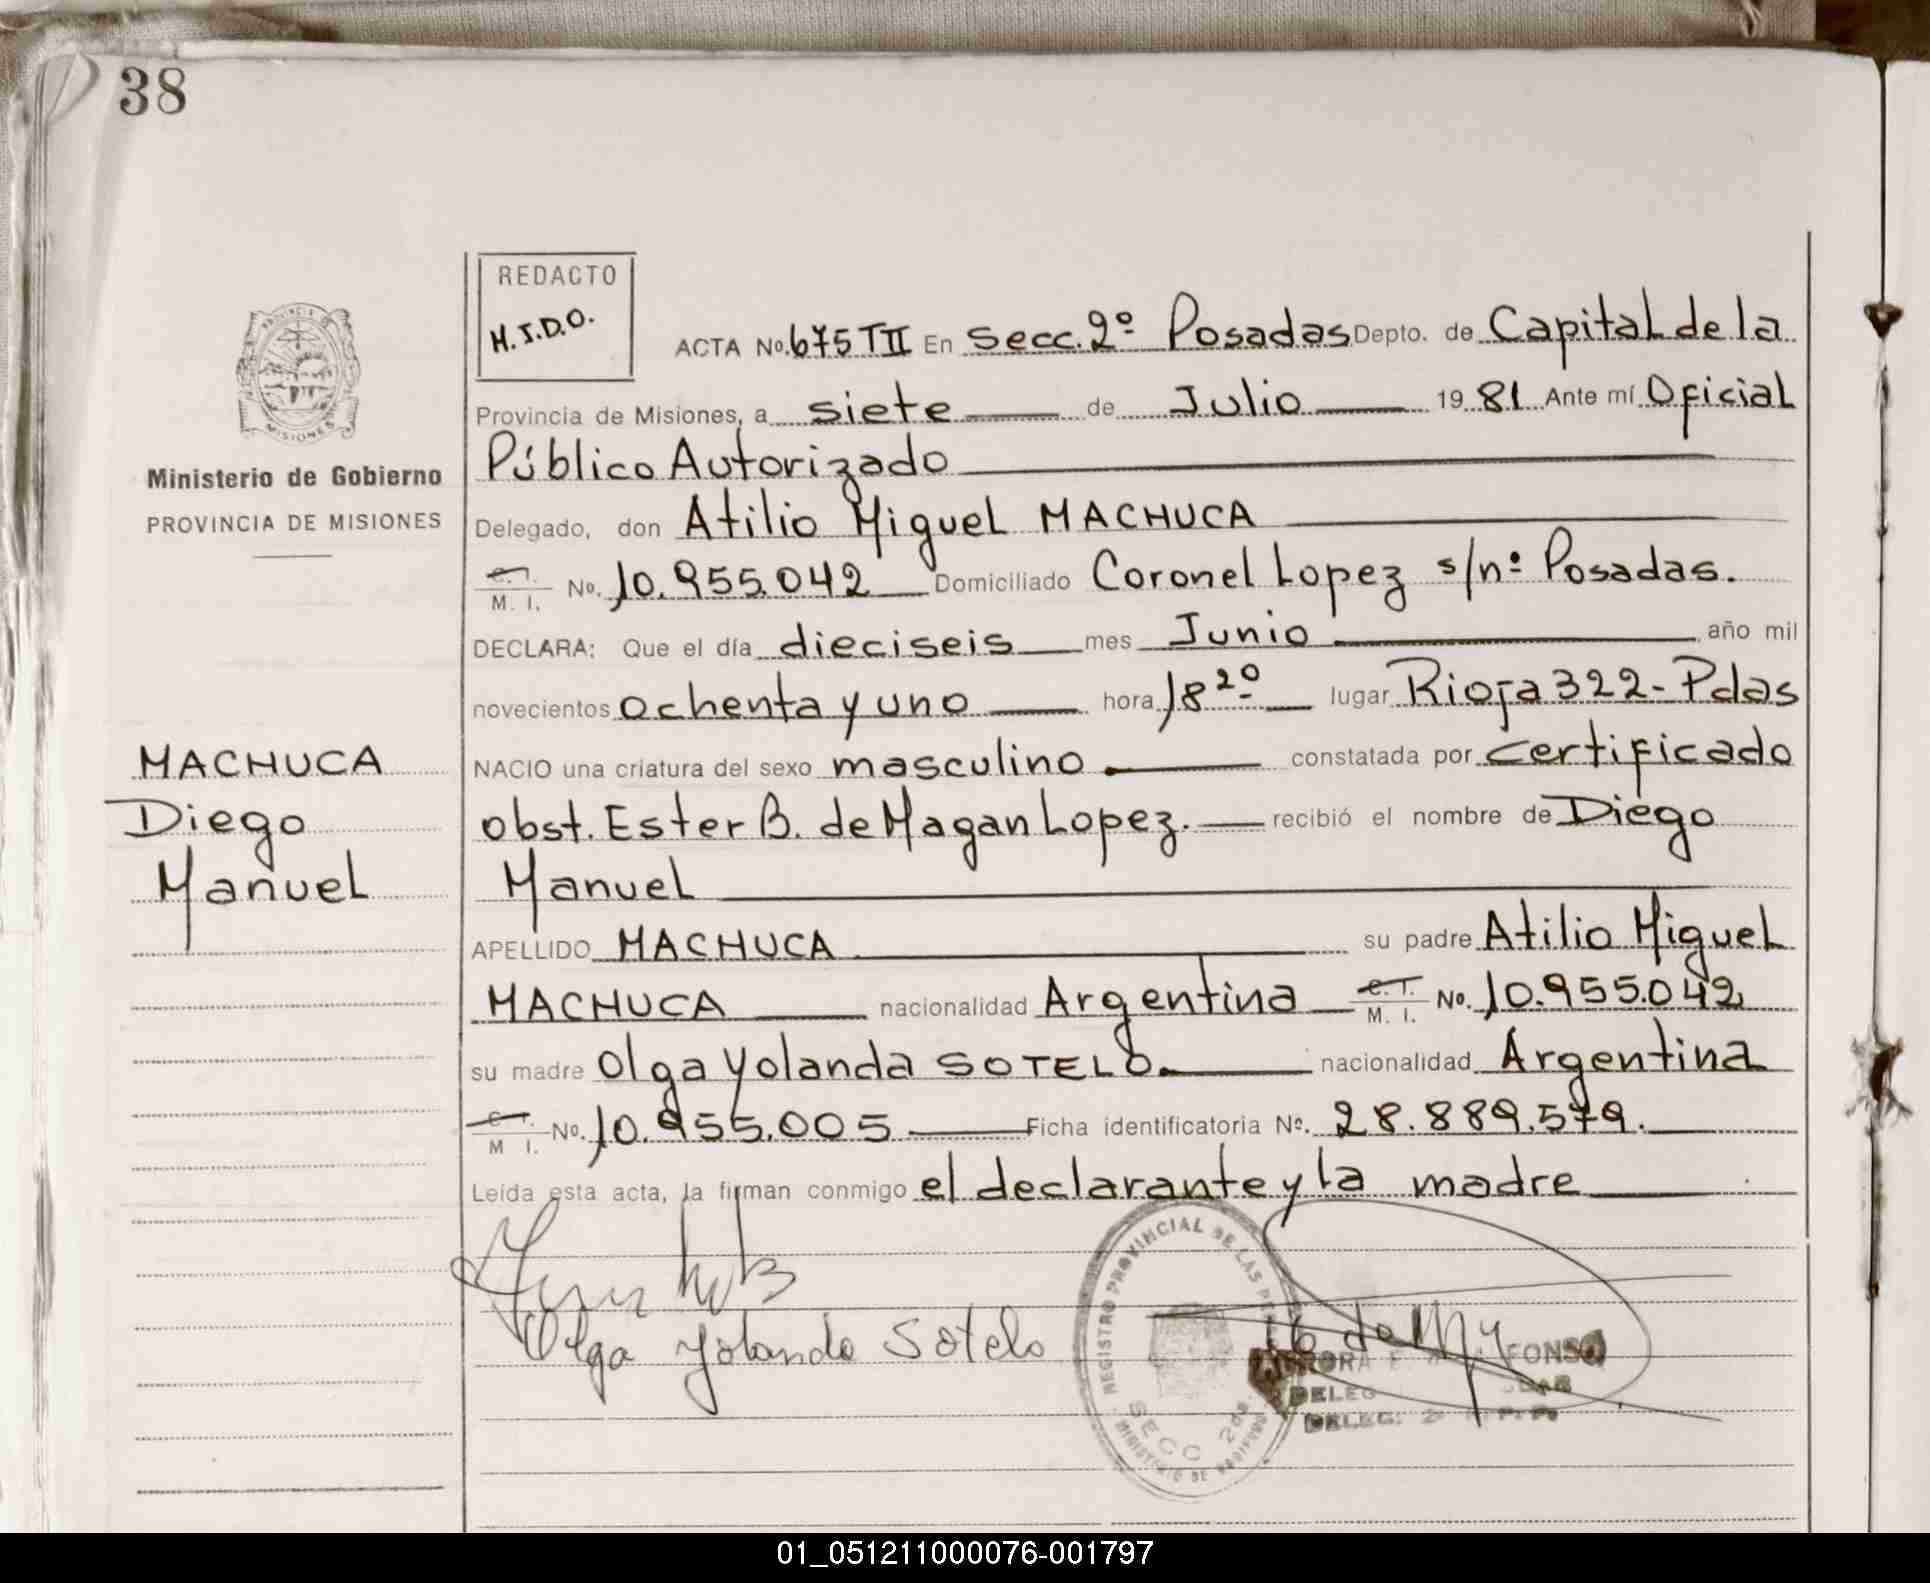 38
REDACTO
M.I.D.O.
ACTA No. 675 TII En Secc. 2º Posadas Depto. de Capital de la
Provincia de Misiones, a siete de Julio 1981 Ante mí Oficial
Público Autorizado
Delegado, don Atilio Miguel MACHUCA
C.I. M. I. No. 10.955.042 Domiciliado Coronel Lopez s/nº Posadas.
DECLARA: Que el día dieciseis mes Junio año mil
novecientos ochenta y uno hora 18 20 lugar Rioja 322- Pdas
NACIO una criatura del sexo masculino constatada por certificado
obst. Ester B. de Magan Lopez. recibió el nombre de Diego
Manuel
APELLIDO MACHUCA su padre Atilio Miguel
MACHUCA nacionalidad Argentina C.I. M. I. No. 10.955.042
su madre Olga Yolanda SOTELO. nacionalidad Argentina
C.I. M I. No. 10.955.005 Ficha identificatoria Nº. 28.889.579.
Leída esta acta, la firman conmigo el declarante y la madre
Olga Yolanda Sotelo
PROVINCIA DE
MISIONES
Ministerio de Gobierno
PROVINCIA DE MISIONES
MACHUCA
Diego
Manuel
REGISTRO PROVINCIAL DE LAS
SECC 2da
MINISTERIO DE
DELEG
DELEG. 2
01_051211000076-001797